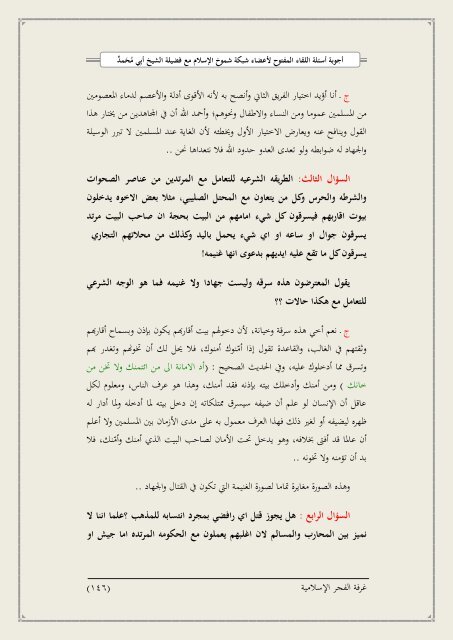 أجوبة أسئلة اللقاء المفتوح لأعضاء شبكة شموخ الإسلام مع فضيلة الشيخ أبي محمد
ج . أنا أؤيد اختيار الفريق الثاني وأنصح به لأنه الأقوى أدلة والأعصم لدماء المعصومين
من المسلمين عموما ومن النساء والاطفال ونحوهم؛ وأحمد الله أن في المجاهدين من يختار هذا
القول وينافح عنه ويعارض الاختيار الأول ويخطئه لأن الغاية عند المسلمين لا تبرر الوسيلة
والجهاد له ضوابطه ولو تعدى العدو حدود الله فلا نتعداها نحن ..
السؤال الثالث: الطريقه الشرعيه للتعامل مع المرتدين من عناصر الصحوات
والشرطه والحرس وكل من يتعاون مع المحتل الصليبي، مثلا بعض الاخوه يدخلون
بيوت اقاربهم فيسرقون كل شيء امامهم من البيت بحجة ان صاحب البيت مرتد
يسرقون جوال او ساعه او اي شيء يحمل باليد وكذلك من محلاتهم التجاري
يسرقون كل ما تقع عليه ايديهم بدعوى انها غنيمه!
يقول المعترضون هذه سرقه وليست جهادا ولا غنيمه فما هو الوجه الشرعي
للتعامل مع هكذا حالات ؟؟
ج . نعم أخي هذه سرقة وخيانة، لأن دخولهم بيت أقاربهم يكون بإذن وبسماح أقاربهم
وثقتهم في الغالب، والقاعدة تقول إذا أمّنوك أمنوك، فلا يحل لك أن تخونهم وتغدر بهم
وتسرق مما أدخلوك عليه، وفي الحديث الصحيح : (أد الامانة الى من ائتمنك ولا تخن من
خانك ) ومن أمنك وأدخلك بيته بإذنه فقد أمنك، وهذا هو عرف الناس، ومعلوم لكل
عاقل أن الإنسان لو علم أن ضيفه سيسرق ممتلكاته إن دخل بيته لما أدخله ولما أدار له
ظهره ليضيفه أو لغير ذلك فهذا العرف معمول به على مدى الأزمان بين المسلمين ولا أعلم
أن عالما قد أفتى بخلافه، وهو يدخل تحت الأمان لصاحب البيت الذي أمنك وأمّنك، فلا
بد أن تؤمنه ولا تخونه ..
وهذه الصورة مغايرة تماما لصورة الغنيمة التي تكون في القتال والجهاد ..
السؤال الرابع : هل يجوز قتل اي رافضي بمجرد انتسابه للمذهب ؟علما اننا لا
نميز بين المحارب والمسالم لان اغلبهم يعملون مع الحكومه المرتده اما جيش او
غرفة الفجر الإسلامية (١٤٦)